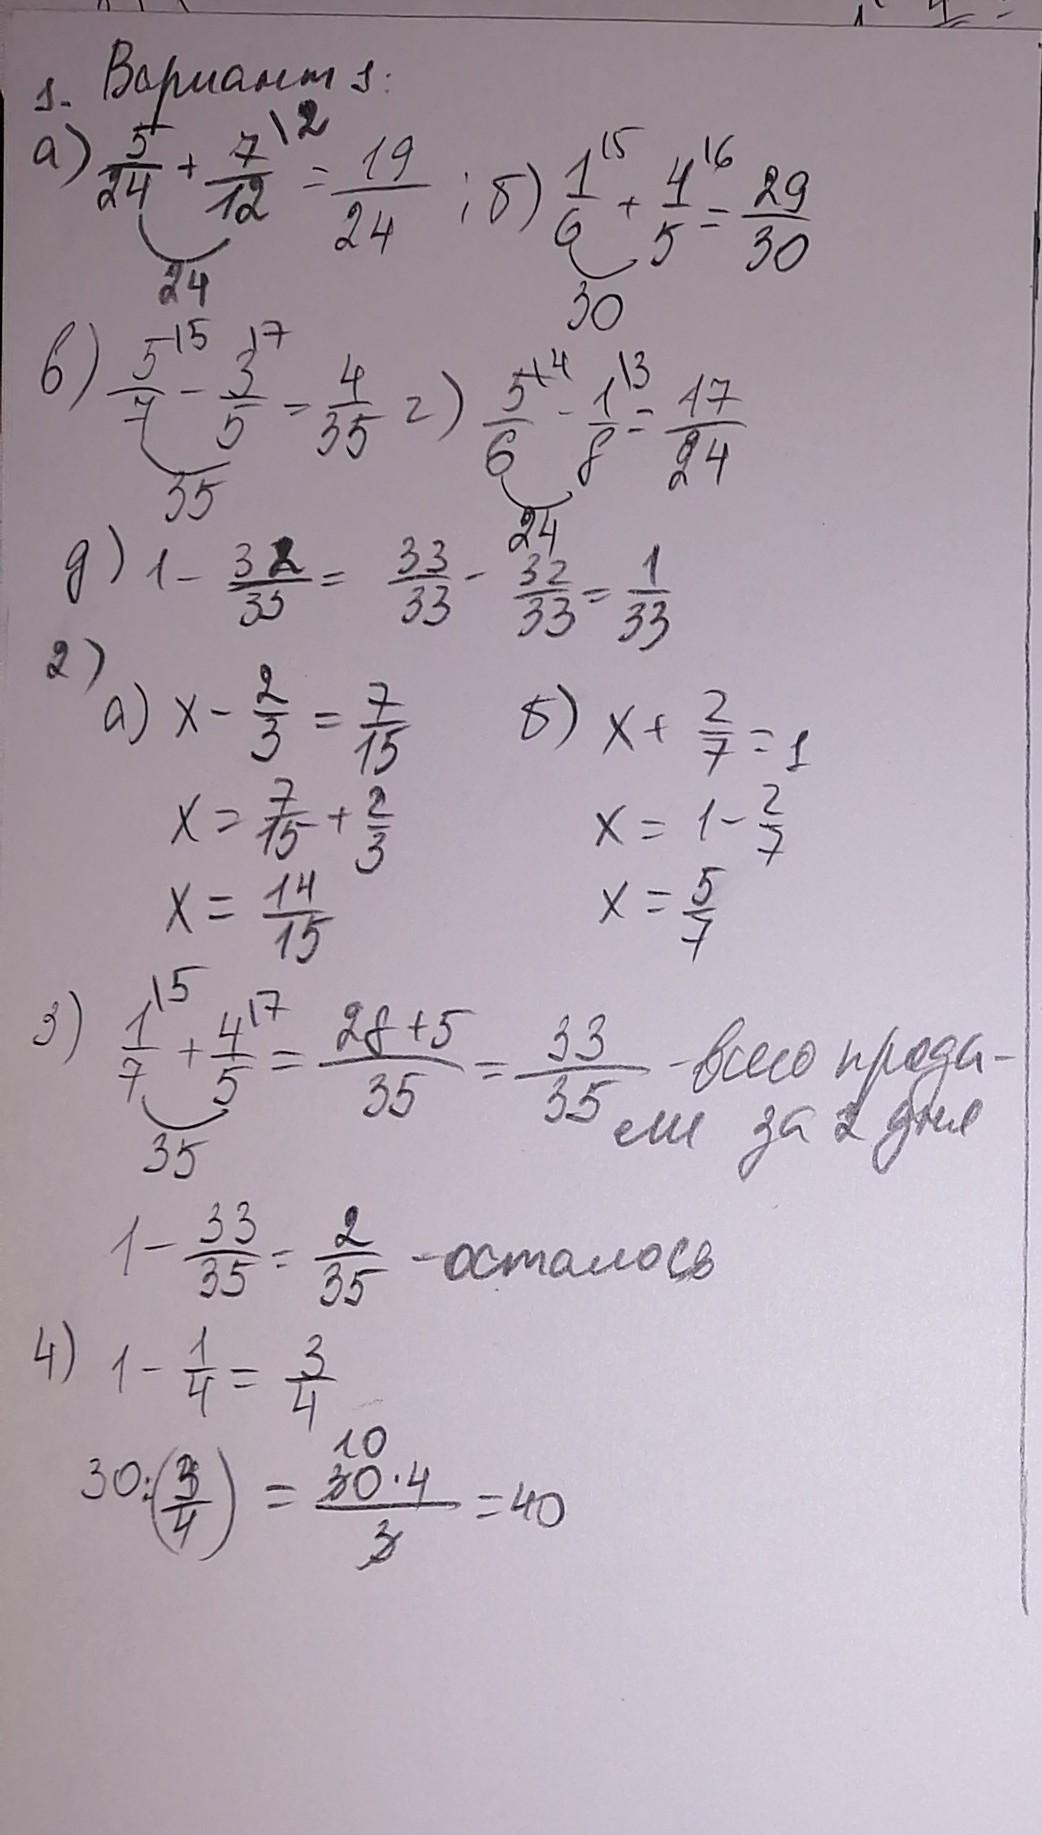 1. Вариант 1:
а) 5/24 + 7/12 \2 = 19/24 ; б) 1/6 \5 + 4/5 \6 = 29/30
24 30
в) 5/7 \5 - 3/5 \7 = 4/35 г) 5/6 \4 - 1/8 \3 = 17/24
35 24
д) 1 - 32/33 = 33/33 - 32/33 = 1/33
2)
а) x - 2/3 = 7/15 б) x + 2/7 = 1
x = 7/15 + 2/3 x = 1 - 2/7
x = 14/15 x = 5/7
3) 1/7 \5 + 4/5 \7 = 28+5/35 = 33/35 - всего прода-
35 ли за 2 дня
1 - 33/35 = 2/35 - осталось
4) 1 - 1/4 = 3/4
10
30:(3/4) = 30·4/3 = 40